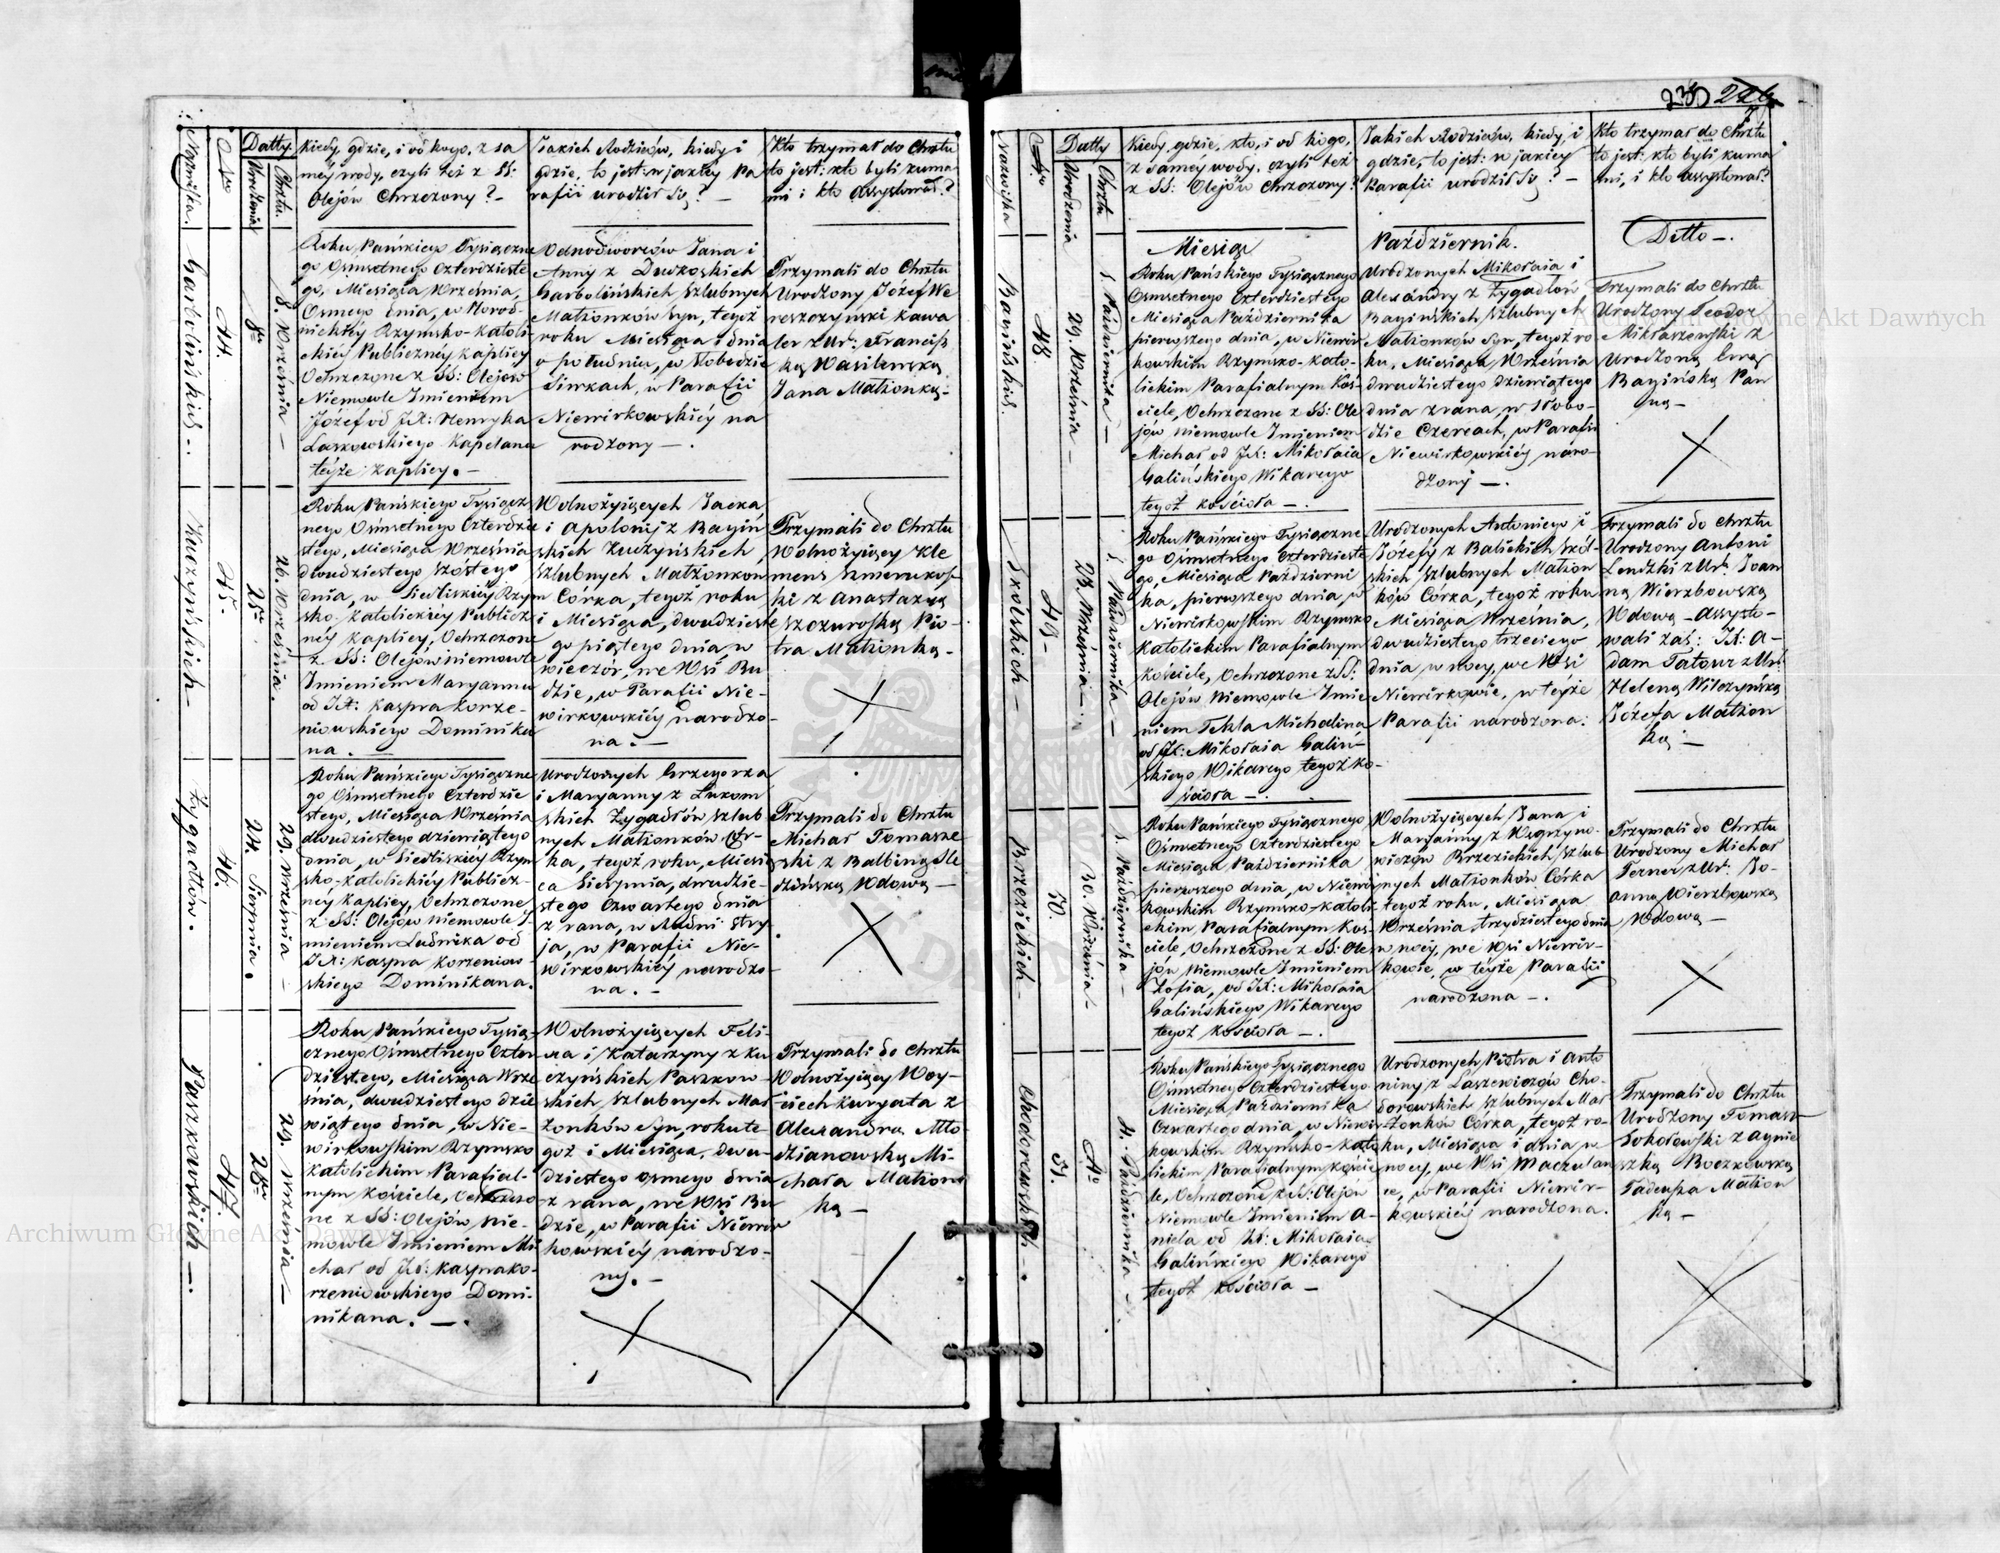 235 226
Nazwiska.
No
Datty
Urodzenia
Chrztu.
Kiedy, gdzie, i od kogo, z sa
méy wody, czyli też z SS:
Olejów Chrzczony? –
Jakich Rodziców, kiedy i
gdzie, to jest: w jakiéy Pa
rafii urodził się? –
Kto trzymał do Chrztu
to jest: kto byli kuma
mi i kto assystował?
Garbolińskich.
44.
8go
8. Września –
Roku Pańskiego Tysiączne
go Osmsetnego Czterdzieste
go, Miesiąca Września,
Osmego dnia, w
Rzymsko-Katoli
ckiéy Publicznéy Kaplicy
Ochrzczone z SS: Olejów
Niemowle Imieniem
Józef od JX: Henryka
Laskowskiego Kapelana
teyże Kaplicy. –
Odnodworców Jana i
Anny z
Garbolińskich Szlubnych
Małżonków Syn, tegoż
roku Miesiąca i dnia
o południu, w Słobodzie
Siwkach, w Parafii
Niewirkowskiéy na
rodzony –.
Trzymali do Chrztu
Urodzony Józef We
reszczyński Kawa
ler z Ur: Francisz
ką Wasilewską
Jana Małżonką –
Kuczyńskich –
45.
25go
26. Września.
Roku Pańskiego Tysiącz
nego Ośmsetnego Czterdzie
stego, Miesiąca Września
dwudziestego szóstego
dnia, w Siedliskiéy Rzym
sko-Katolickiéy Publicz
néy Kaplicy, Ochrzczone
z SS: Olejów niemowle
Imieniem Maryanna
od JX: Kaspra Korze-
niowskiego Dominika
na. –
Wolnożyjących Jacka
i Apolonij z Bagiń
skich Kuczyńskich
Szlubnych Małżonków
Córka, tegoż roku
i Miesiąca, dwudzieste
go piątego dnia, w
wieczór, we Wsi Bu
dzie, w Parafii Nie-
wirkowskiéy narodzo-
na. –
Trzymali do Chrztu
Wolnożyjący Kle
mens
ki z Anastazyą
Szczurowską Pio-
tra Małżonką –
Żygadłów.
46.
24. Sierpnia.
29. Września –
Roku Pańskiego Tysiączne
go Ośmsetnego Czterdzie
stego, Miesiąca Września
dwudziestego dziewiątego
dnia, w Siedliskiéy Rzym
sko-Katolickiéy Publicz-
néy Kaplicy, Ochrzczone
z SS: Olejów niemowle I-
mieniem Ludwika od
JX: Kaspra Korzeniow-
skiego Dominikana.
Urodzonych Grzegorza
i Maryanny z Łukom
skich Żygadłów Szlub
nych Małżonków Cór-
ka, tegoż roku, Miesią
ca Sierpnia, dwudzie-
stego czwartego dnia
z rana, w Rudni Stry
ja, w Parafii Nie-
wirkowskiéy narodzo-
na. –
Trzymali do Chrztu
Michał Tomasze
wski z Balbiną Śle
dzińską Wdową –
Paszkowskich –.
47.
28go
29. Września –
Roku Pańskiego Tysią-
cznego Ośmsetnego Czter
dziestego, Miesiąca Wrze
śnia, dwudziestego dzie
wiątego dnia, w Nie-
wirkowskim Rzymsko
Katolickim Parafial-
nym Kościele, Ochrzczo
ne z SS: Olejów, Nie-
mowle Imieniem Mi
chał od JX: Kaspra Ko-
rzeniowskiego Domi-
nikana. –.
Wolnożyjących Feli-
xa i Katarzyny z Ku
czyńskich Paszkow-
skich Szlubnych Mał
żonków Syn, roku te
goż i Miesiąca, dwu-
dziestego osmego dnia
z rana, we Wsi Bu
dzie, w Parafii Niewir
kowskiéy narodzo-
ny. –
Trzymali do Chrztu
Wolnożyjący Woy-
ciech Kurgata z
Alexandrą Mło
dzianowską Mi-
chała Małżon
ką –
Nazwiska
No
Datty
Urodzenia
Chrztu
Kiedy, gdzie, kto, i od kogo,
z saméy wody, czyli też
z SS: Olejów Chrzczony?
Jakich Rodziców, kiedy, i
gdzie, to jest: w jakiéy
Parafii urodził się? –
Kto trzymał do Chrztu
to jest: kto byli kuma
mi, i kto assystował?
Miesiąc
Październik.
Ditto –.
Bagińskich.
48.
29. Września –
1. Października –
Roku Pańskiego Tysiącznego
Osmsetnego Czterdziestego
Miesiąca Października
pierwszego dnia, w Niewir
kowskim Rzymsko-Kato-
lickim Parafialnym Koś-
ciele, Ochrzczone z SS: Ole
jów niemowle Imieniem
Michał od JX: Mikołaia
Galińskiego Wikarego
tegoż kościoła –.
Urodzonych Mikołaia i
Alexandry z Żygadłów
Bagińskich Szlubnych
Małżonków Syn, tegoż ro
ku, Miesiąca Września
dwudziestego dziewiątego
dnia z rana, w Słobo-
dzie Czercach, w Parafii
Niewirkowskiéy naro-
dzony –.
Trzymali do Chrztu
Urodzony Teodor
Mikłaszewski z
Urodzoną
Bagińską Pan
ną –
Szkólskich –
49 –
23. Września –
1. Października –
Roku Pańskiego Tysiączne
go Ośmsetnego Czterdzieste
go, Miesiąca Październi
ka, pierwszego dnia, w
Niewirkowskim Rzymsko
Katolickim Parafialnym
Kościele, Ochrzczone z SS:
Olejów Niemowle Imie
niem Tekla Michalina,
od JX: Mikołaia Galiń-
skiego Wikarego tegoż ko-
ścioła –.
Urodzonych Antoniego i
Józefy z Balickich Szkól-
skich Szlubnych Małżon
ków Córka, tegoż roku
Miesiąca Września,
dwudziestego trzeciego
dnia w nocy, we Wsi
Niewirkowie, w teyże
Parafii narodzona.
Trzymali do Chrztu
Urodzony Antoni
Lendzki z Ur: Joan
ną Wierzbowską
Wdową – Assysto-
wali zaś: JX: A-
dam Tatour z Ur:
Heleną Wilczyńską
Józefa Małżon
ką –
Brzezickich –
50.
30. Września –
1. Października –
Roku Pańskiego Tysiącznego
Ośmsetnego Czterdziestego
Miesiąca Października
pierwszego dnia, w Niewir
kowskim Rzymsko-Katoli
ckim Parafialnym Koś-
ciele, Ochrzczone z SS: Ole
jów Niemowle Imieniem
Zofia, od JX: Mikołaia
Galińskiego Wikarego
tegoż kościoła –.
Wolnożyjących Jana i
Maryanny z Węgrzyno-
wiczów Brzezickich Szlub
nych Małżonków Córka
tegoż roku, Miesiąca
Września trzydziestego dnia
w nocy, we Wsi Niewir-
kowie, w teyże Parafii
narodzona –.
Trzymali do Chrztu
Urodzony Michał
Terner z Ur: Jo-
anną Wierzbowską
Wdową –
Chodorowskich –.
51.
4go
4. Października –
Roku Pańskiego Tysiącznego
Ośmsetnego Czterdziestego
Miesiąca Października
Czwartego dnia, w Niewir
kowskim Rzymsko-Kato
lickim Parafialnym Koście
le, Ochrzczone z SS: Olejów
Niemowle Imieniem A-
niela od JX: Mikołaia
Galińskiego Wikarego
tegoż kościoła –
Urodzonych Piotra i Anto
niny z Laszewiczów Cho-
dorowskich Szlubnych Mał
żonków Córka, tegoż ro-
ku, Miesiąca i dnia w
nocy, we Wsi Maczulan
ce, w Parafii Niewir-
kowskiéy narodzona.
Trzymali do Chrztu
Urodzony Tomasz
Sokołowski z Agnie
szką Boczkowską
Tadeusza Małżon
ką –
Archiwum Główne Akt Dawnych
Archiwum Główne Akt Dawnych